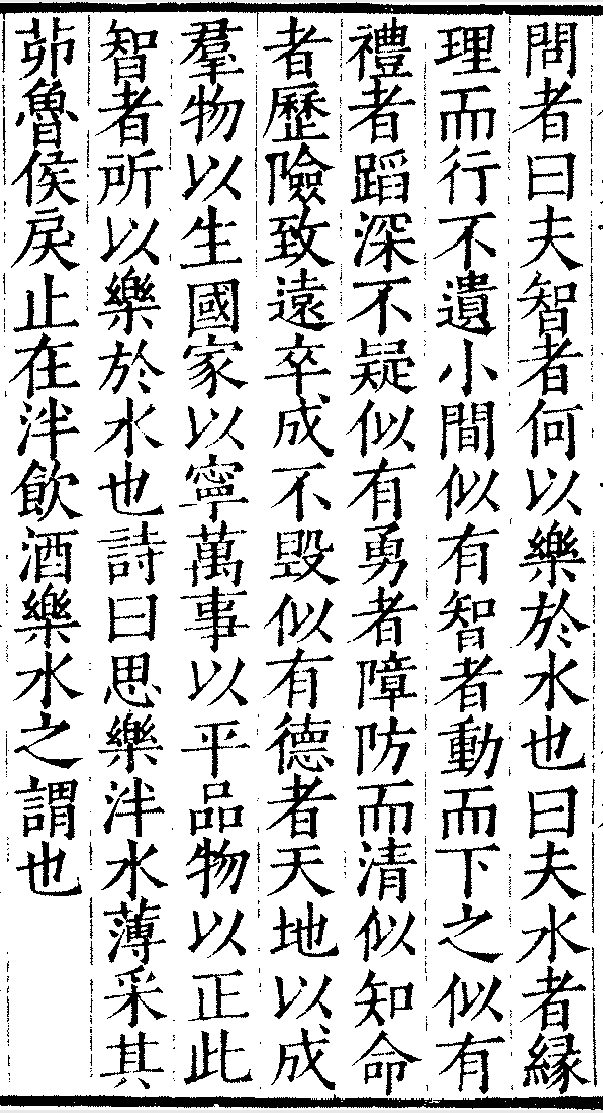 問者曰夫智者何以樂於水也曰夫水者緣
理而行不遺小間似有智者動而下之似有
禮者蹈深不疑似有勇者障防而清似知命
者歷險致遠卒成不毀似有德者天地以成
羣物以生國家以寧萬事以平品物以正此
智者所以樂於水也詩曰思樂泮水薄采其
茆魯侯戾止在泮飲酒樂水之謂也